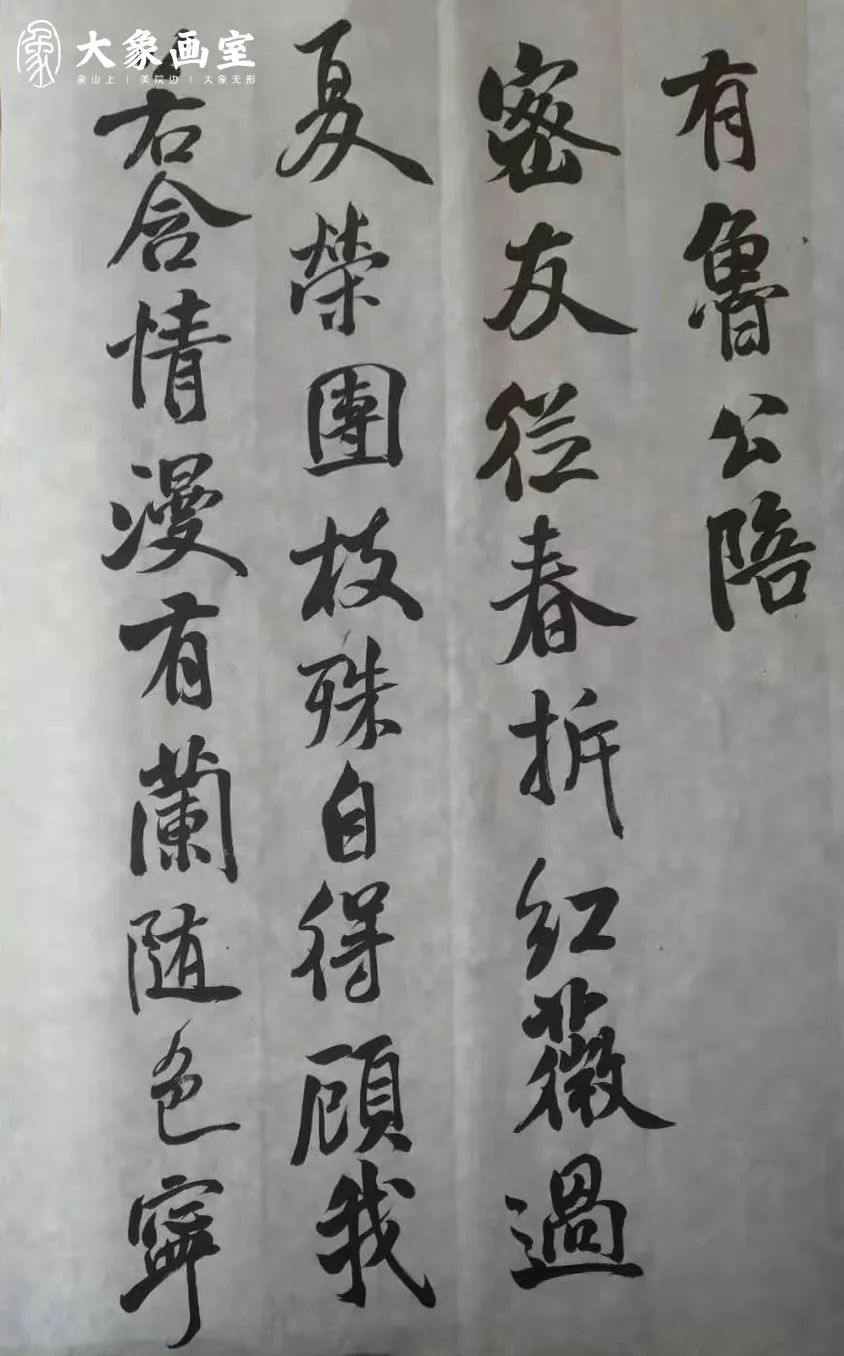 大象画室
象山上 | 美院边 | 大象无形
有魯公陪
密友从春拆红薇過
夏榮團枝殊自得顧我
若含情漫有蘭随色寧